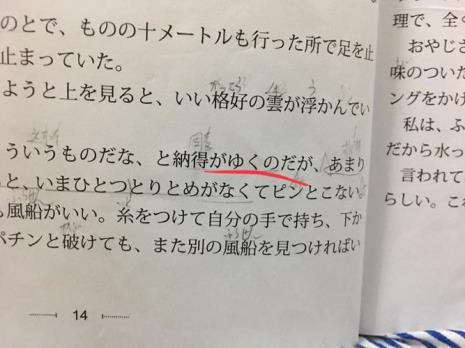 のとで、ものの十メートルも行った所で足を止
止まっていた。
ようと上を見ると、いい格好の雲が浮かんでい
ういうものだな、と納得がゆくのだが、あまり
と、いまひとつとりとめがなくてピンとこない。
も風船がいい。糸をつけて自分の手で持ち、下か
パチンと破けても、また別の風船を見つければい
14
理で、全く
おやじさ
味のついた
ングをかけ
私は、ふ
だから水っ
言われて
らしい。これ